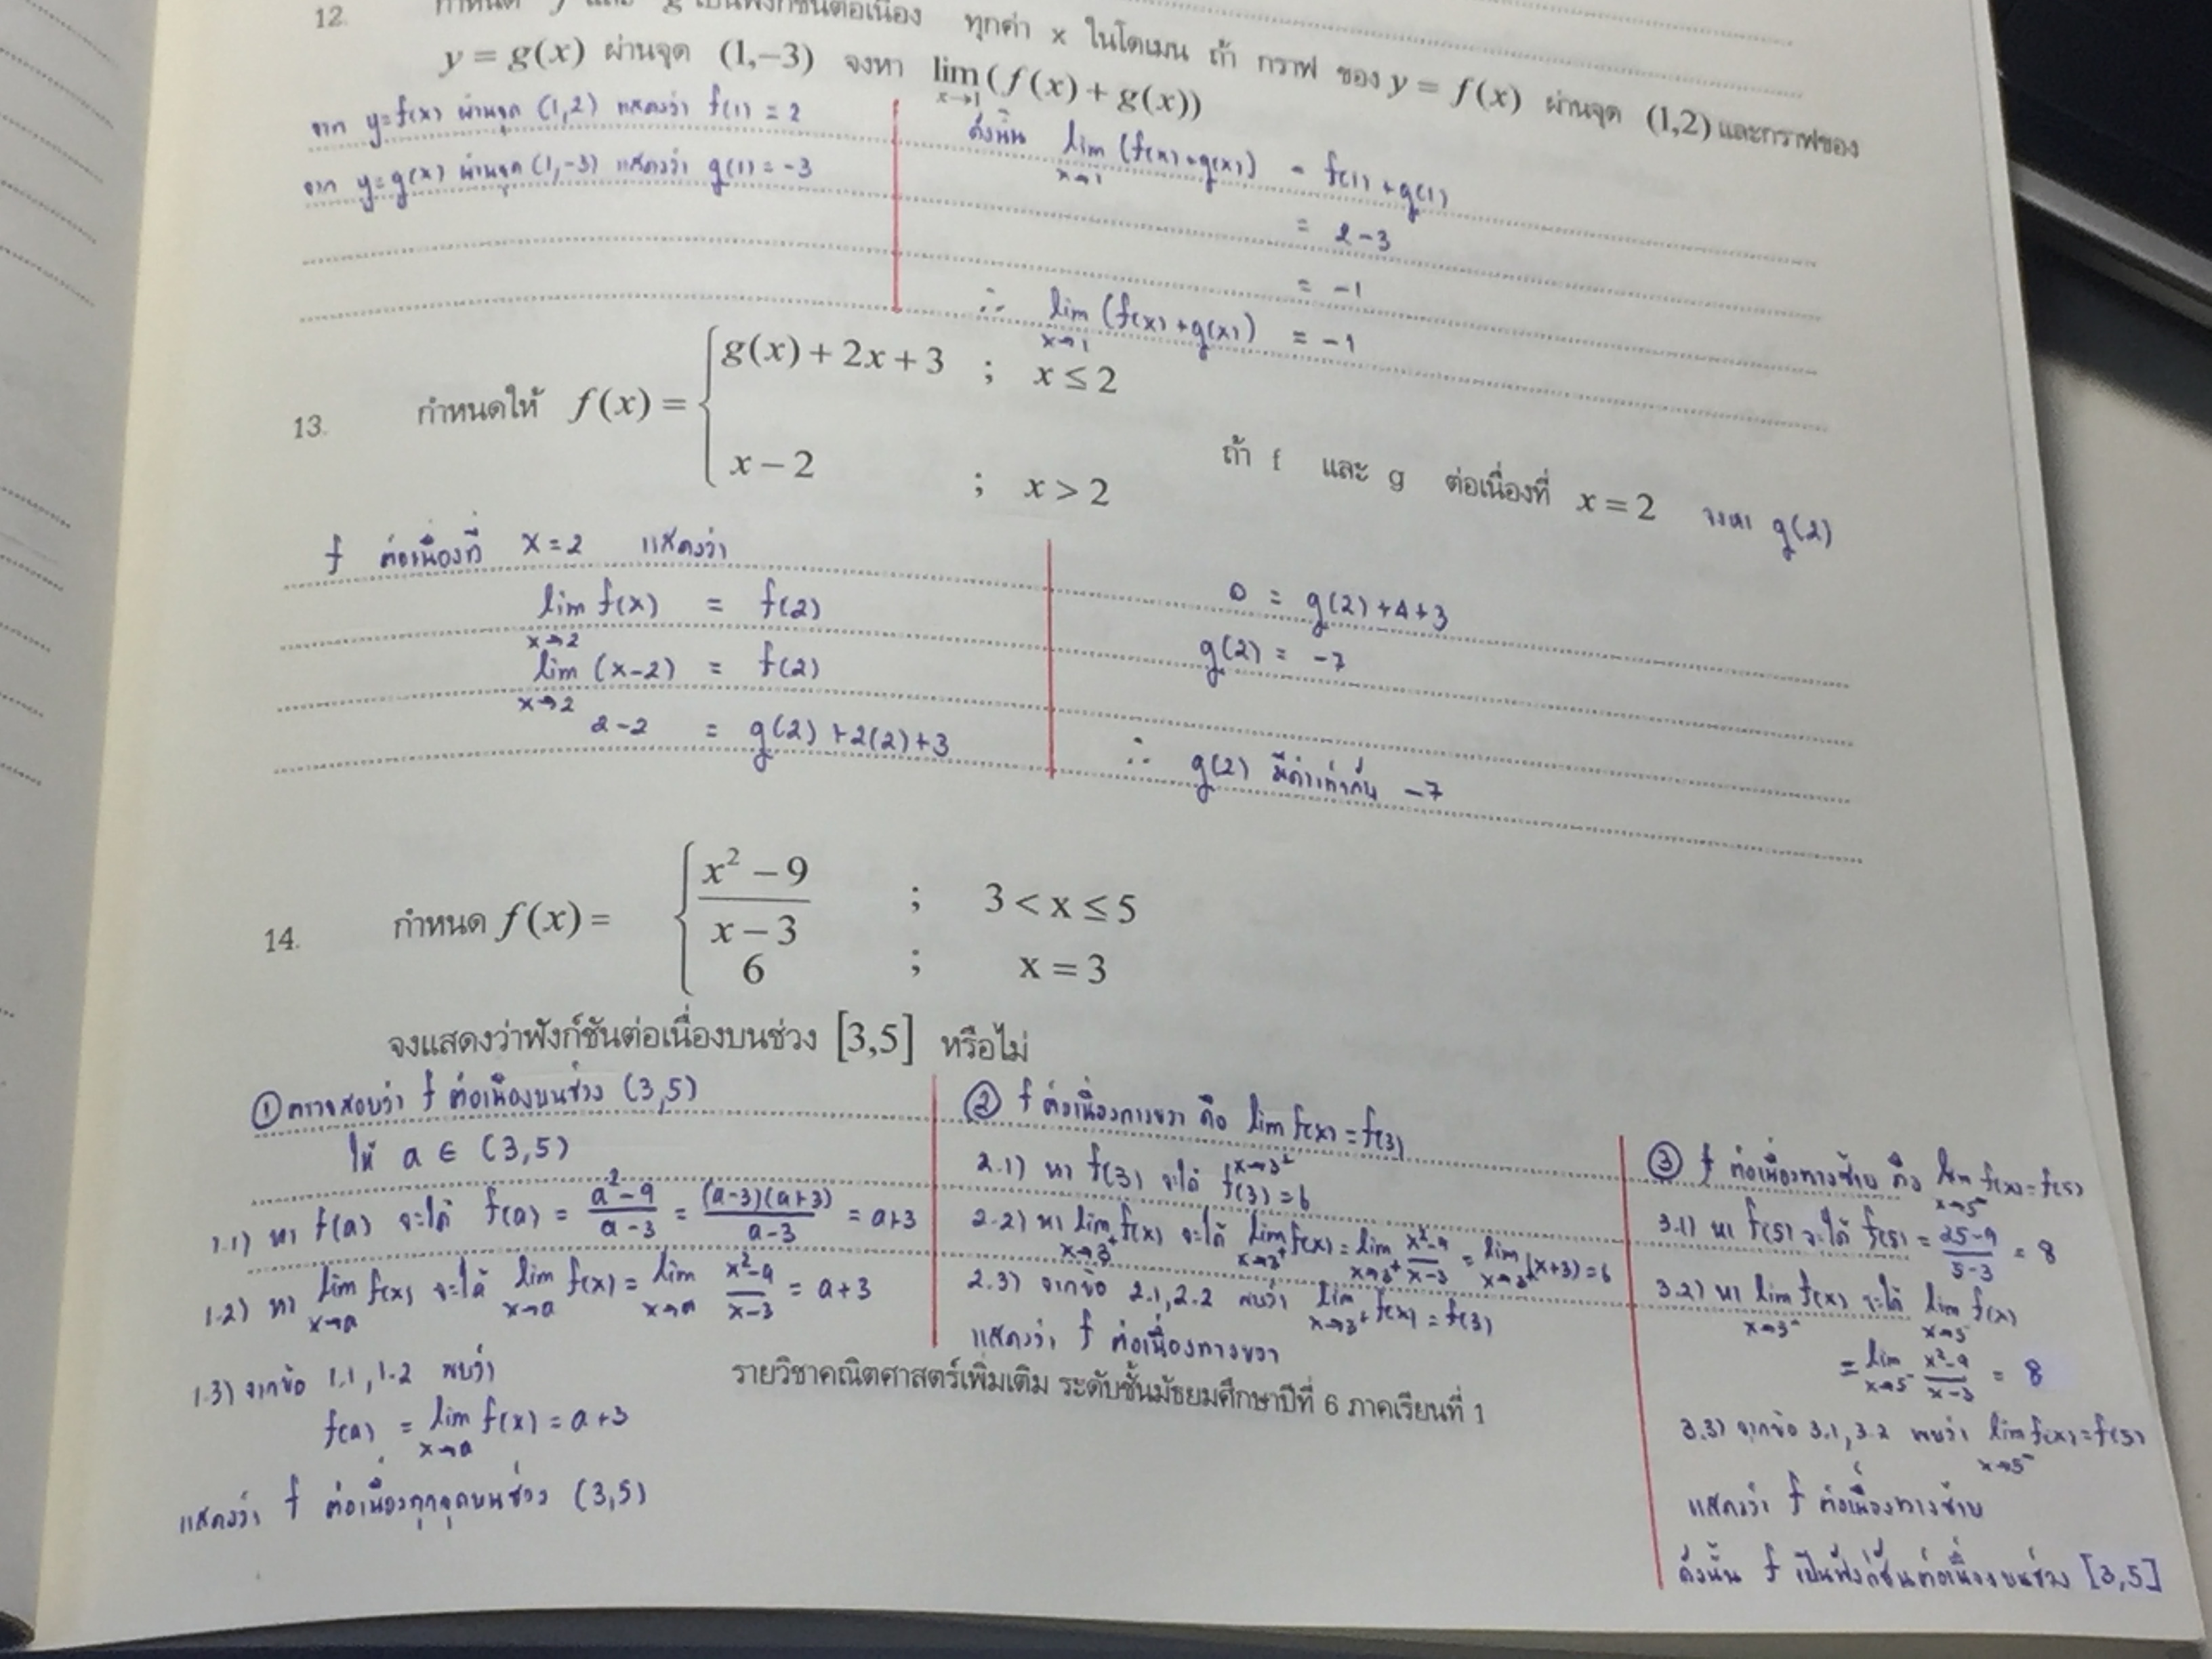 12. กำหนด f และ g เป็นฟังก์ชันต่อเนื่อง ทุกค่า x ในโดเมน ถ้า กราฟ ของ y = f(x) ผ่านจุด (1,2) และกราฟของ
y = g(x) ผ่านจุด (1,−3) จงหา lim x→1 (f(x) + g(x))
จาก y=f(x) ผ่านจุด (1,2) แสดงว่า f(1) = 2
จาก y=g(x) ผ่านจุด (1,-3) แสดงว่า g(1) = -3
ดังนั้น lim x→1 (f(x)+g(x)) = f(1)+g(1)
= 2-3
= -1
∴ lim x→1 (f(x)+g(x)) = -1
13. กำหนดให้ f(x) = { g(x) + 2x + 3 ; x ≤ 2
x − 2 ; x > 2
ถ้า f และ g ต่อเนื่องที่ x = 2 จงหา g(2)
f ต่อเนื่องที่ x=2 แสดงว่า
lim x→2 f(x) = f(2)
lim x→2 (x-2) = f(2)
2-2 = g(2)+2(2)+3
0 = g(2)+4+3
g(2) = -7
∴ g(2) มีค่าเท่ากับ -7
14. กำหนด f(x) = { (x² − 9)/(x − 3) ; 3 < x ≤ 5
6 ; x = 3
จงแสดงว่าฟังก์ชันต่อเนื่องบนช่วง [3,5] หรือไม่
① ตรวจสอบว่า f ต่อเนื่องบนช่วง (3,5)
ให้ a ∈ (3,5)
1.1) หา f(a) จะได้ f(a) = (a²-9)/(a-3) = (a-3)(a+3)/(a-3) = a+3
1.2) หา lim x→a f(x) จะได้ lim x→a f(x) = lim x→a (x²-9)/(x-3) = a+3
1.3) จากข้อ 1.1, 1.2 พบว่า
f(a) = lim x→a f(x) = a+3
แสดงว่า f ต่อเนื่องทุกจุดบนช่วง (3,5)
② f ต่อเนื่องทางขวา คือ lim x→3⁺ f(x) = f(3)
2.1) หา f(3) จะได้ f(3) = 6
2.2) หา lim x→3⁺ f(x) จะได้ lim x→3⁺ f(x) = lim x→3⁺ (x²-9)/(x-3) = lim x→3⁺ (x+3) = 6
2.3) จากข้อ 2.1, 2.2 พบว่า lim x→3⁺ f(x) = f(3)
แสดงว่า f ต่อเนื่องทางขวา
③ f ต่อเนื่องทางซ้าย คือ lim x→5⁻ f(x) = f(5)
3.1) หา f(5) จะได้ f(5) = (25-9)/(5-3) = 8
3.2) หา lim x→5⁻ f(x) จะได้ lim x→5⁻ f(x)
= lim x→5⁻ (x²-9)/(x-3) = 8
3.3) จากข้อ 3.1, 3.2 พบว่า lim x→5⁻ f(x) = f(5)
แสดงว่า f ต่อเนื่องทางซ้าย
ดังนั้น f เป็นฟังก์ชันต่อเนื่องบนช่วง [3,5]
รายวิชาคณิตศาสตร์เพิ่มเติม ระดับชั้นมัธยมศึกษาปีที่ 6 ภาคเรียนที่ 1